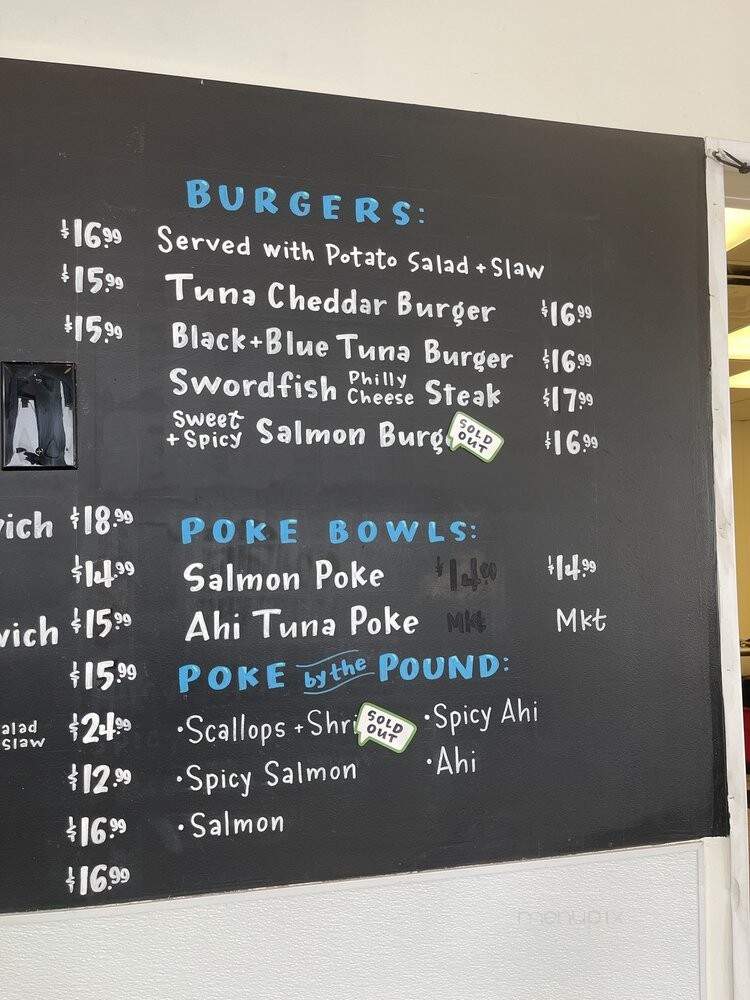 BURGERS:
$16.99
Served with Potato Salad + Slaw
$15.99
Tuna Cheddar Burger $16.99
$15.99
Black+Blue Tuna Burger $16.99
Swordfish Philly Cheese Steak $17.99
Sweet + Spicy Salmon Burg SOLD OUT $16.99
wich $18.99
POKE BOWLS:
$14.99
Salmon Poke $14.99 $14.99
wich $15.99
Ahi Tuna Poke Mkt Mkt
$15.99
POKE by the POUND:
alad slaw $24.99
•Scallops + Shri SOLD OUT •Spicy Ahi
$12.99
•Spicy Salmon •Ahi
$16.99
•Salmon
$16.99
menupix